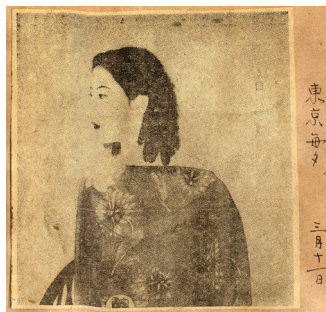 東京毎夕 三月十一日